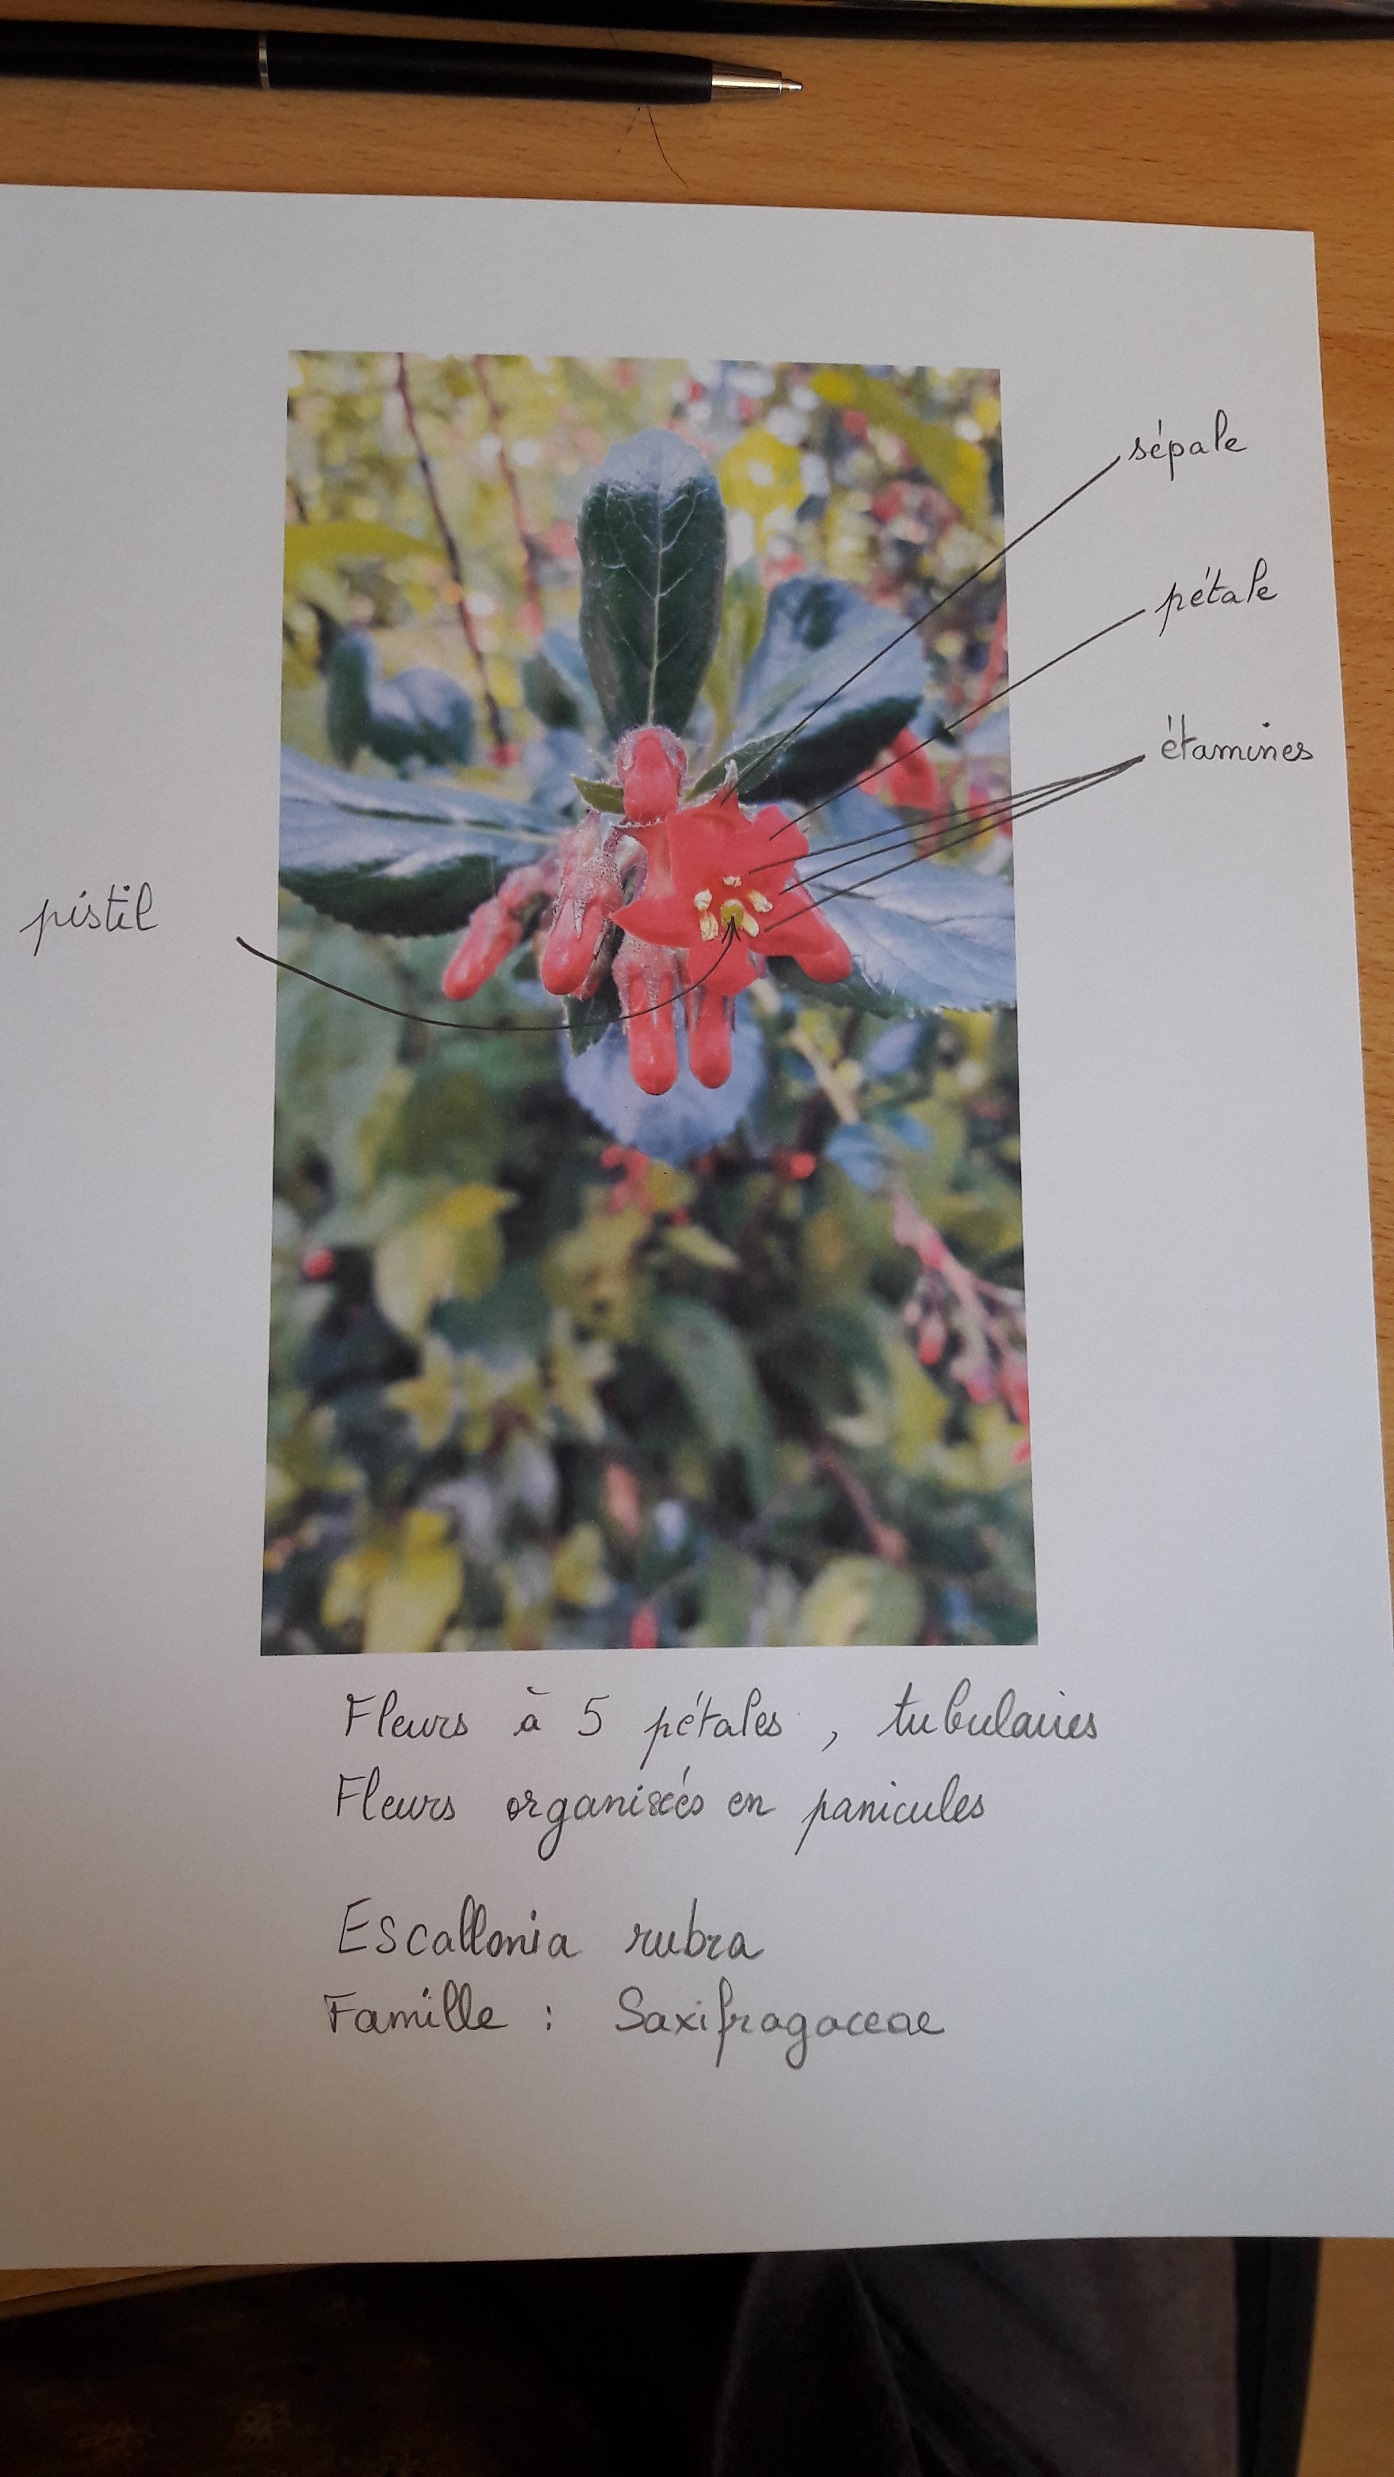 sépale
pétale
étamines
pistil
Fleurs à 5 pétales, tubulaires
Fleurs organisées en panicules
Escallonia rubra
Famille : Saxifragaceae